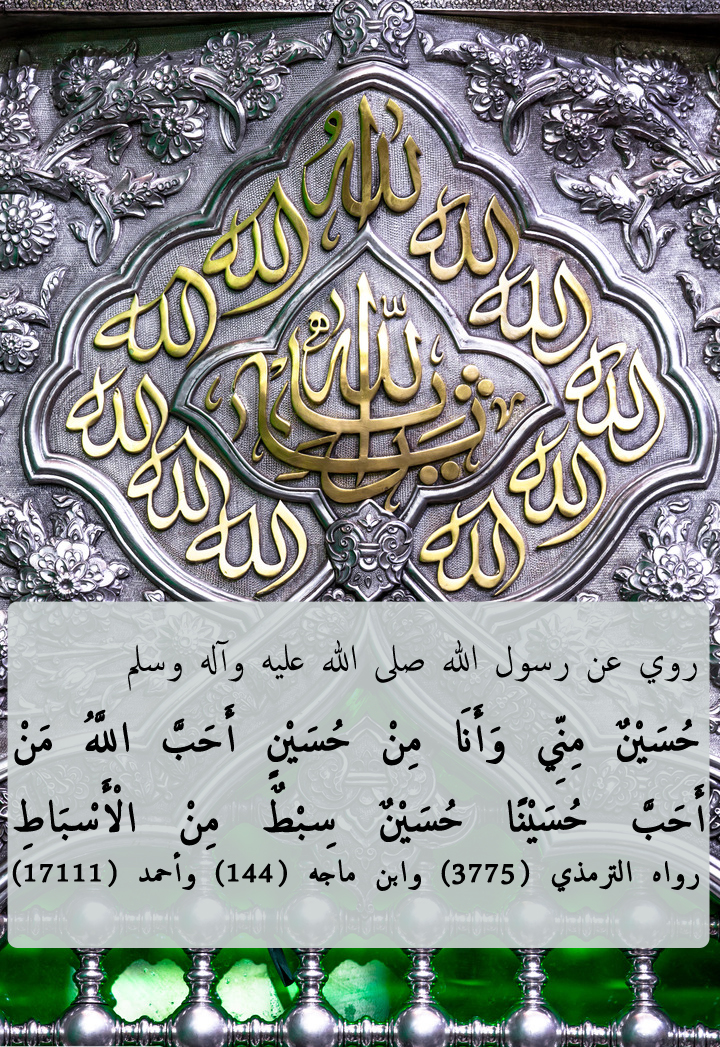 الله
الله
الله
الله
الله
الله
الله
الله
الله
الله
الله
روي عن رسول الله صلى الله عليه وآله وسلم
حُسَيْنٌ مِنِّي وَأَنَا مِنْ حُسَيْنٍ أَحَبَّ اللَّهُ مَنْ
أَحَبَّ حُسَيْنًا حُسَيْنٌ سِبْطٌ مِنْ الْأَسْبَاطِ
رواه الترمذي (3775) وابن ماجه (144) وأحمد (17111)